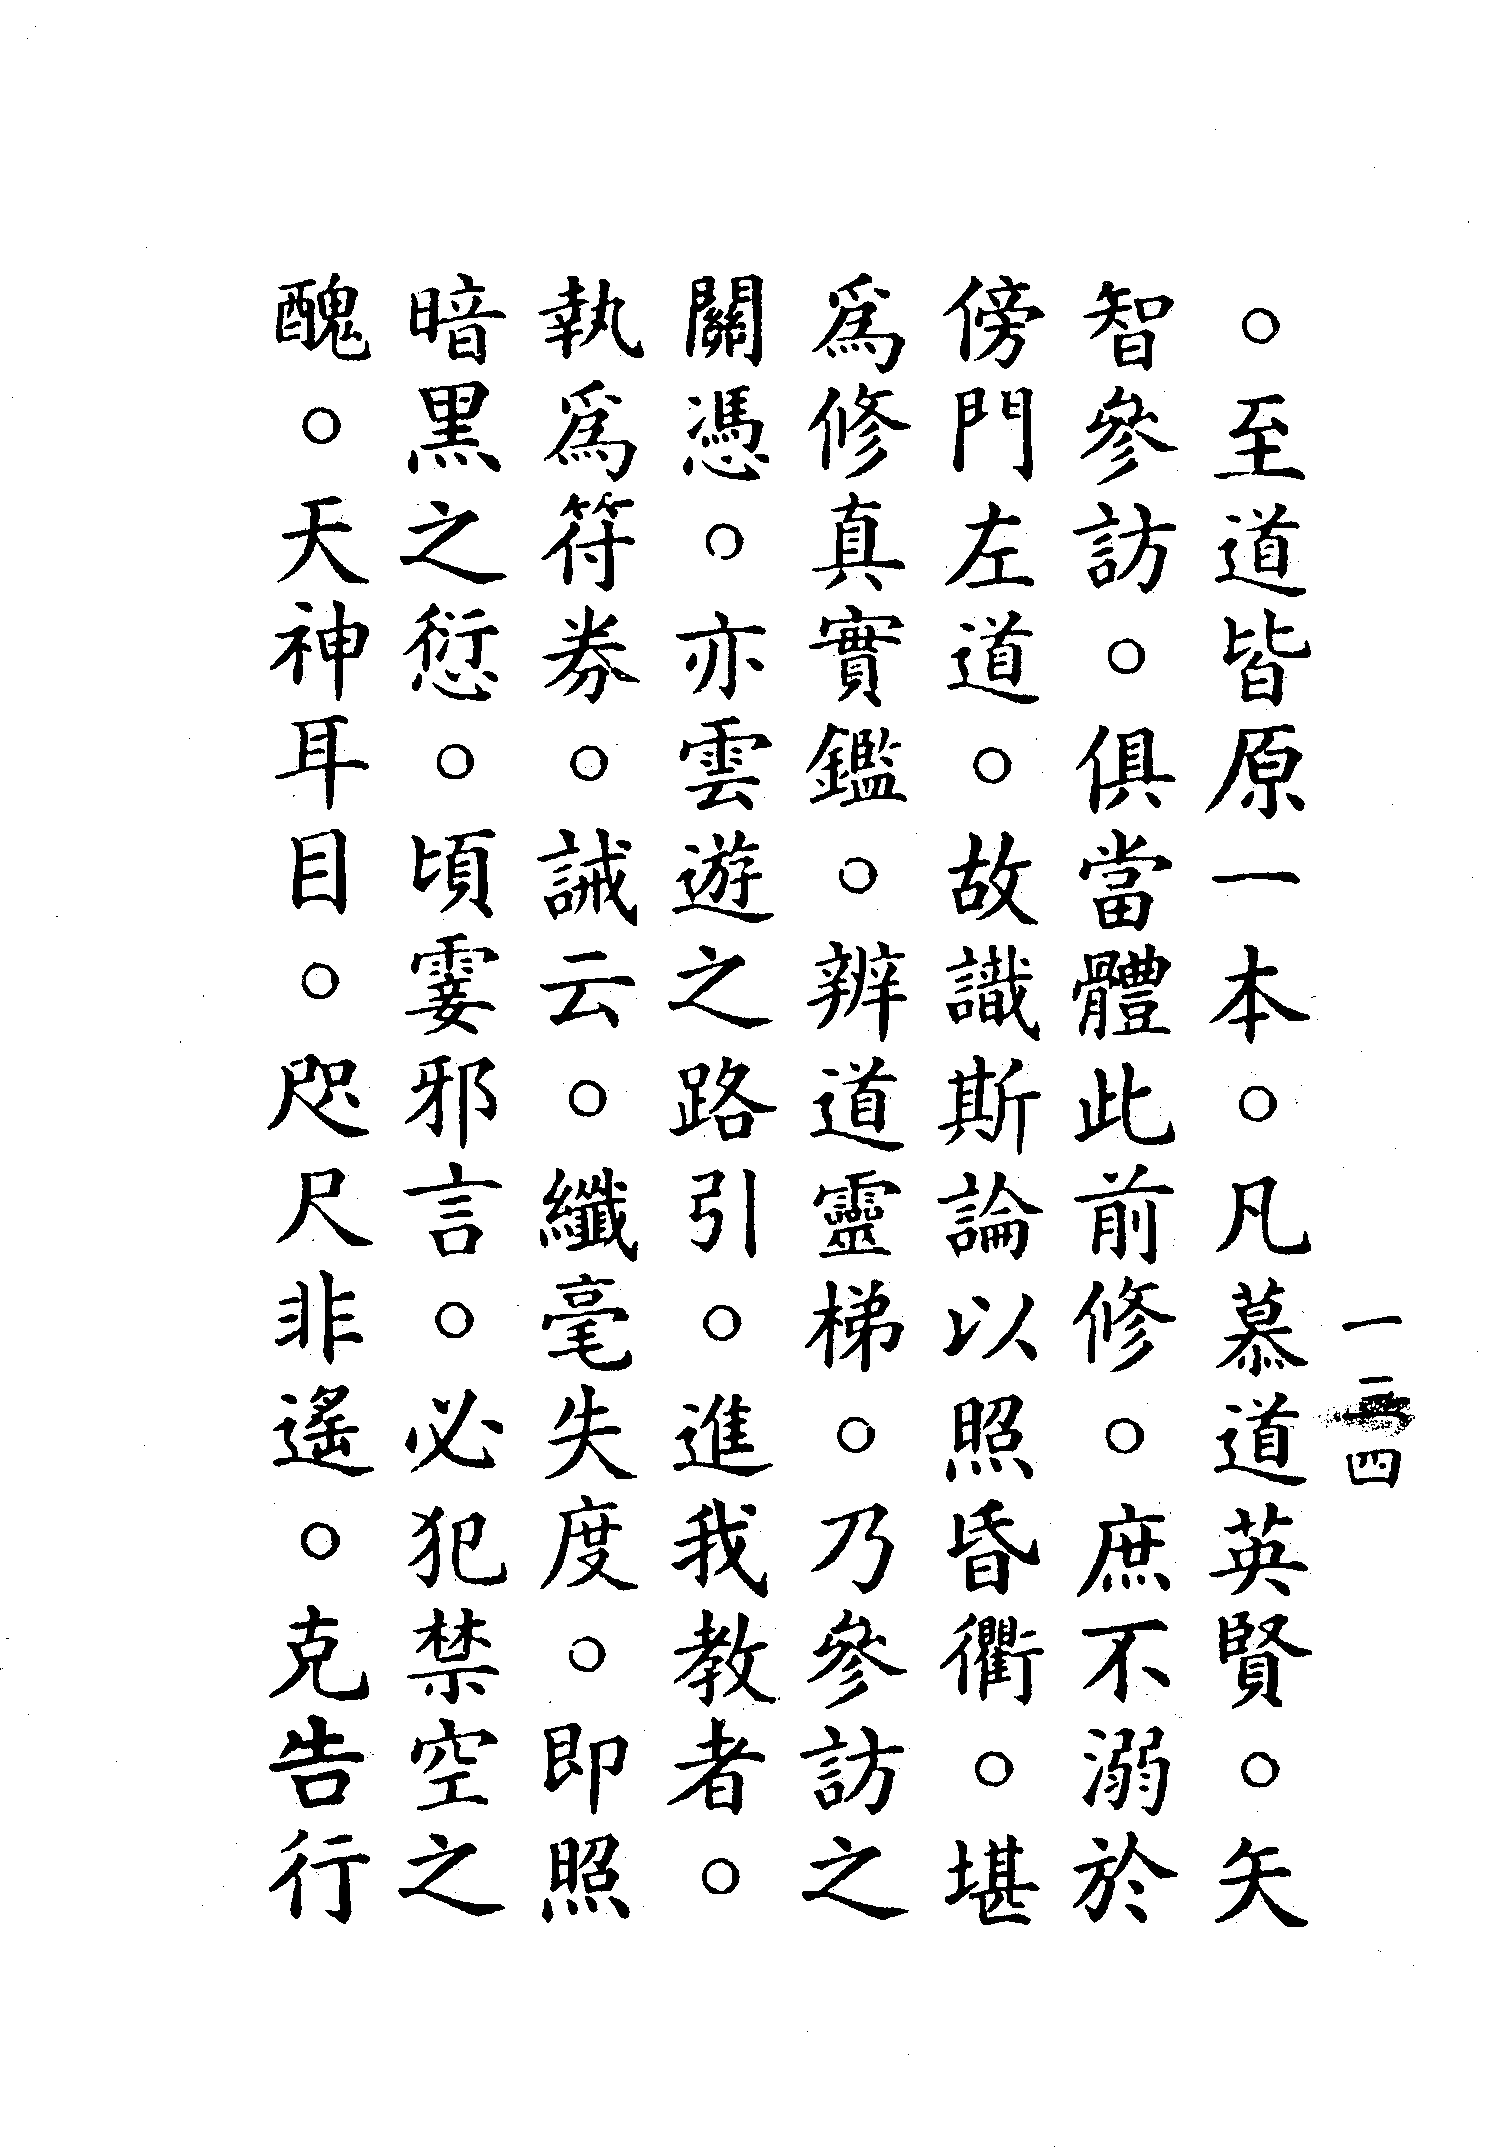 。至道皆原一本。凡慕道英賢。矢
智參訪。俱當體此前修。庶不溺於
傍門左道。故識斯論以照昏衢。堪
為修真實鑑。辨道靈梯。乃參訪之
關憑。亦雲遊之路引。進我教者。
執為符券。誡云。纖毫失度。即照
暗黑之愆。頃霎邪言。必犯禁空之
醜。天神耳目。咫尺非遙。克告行